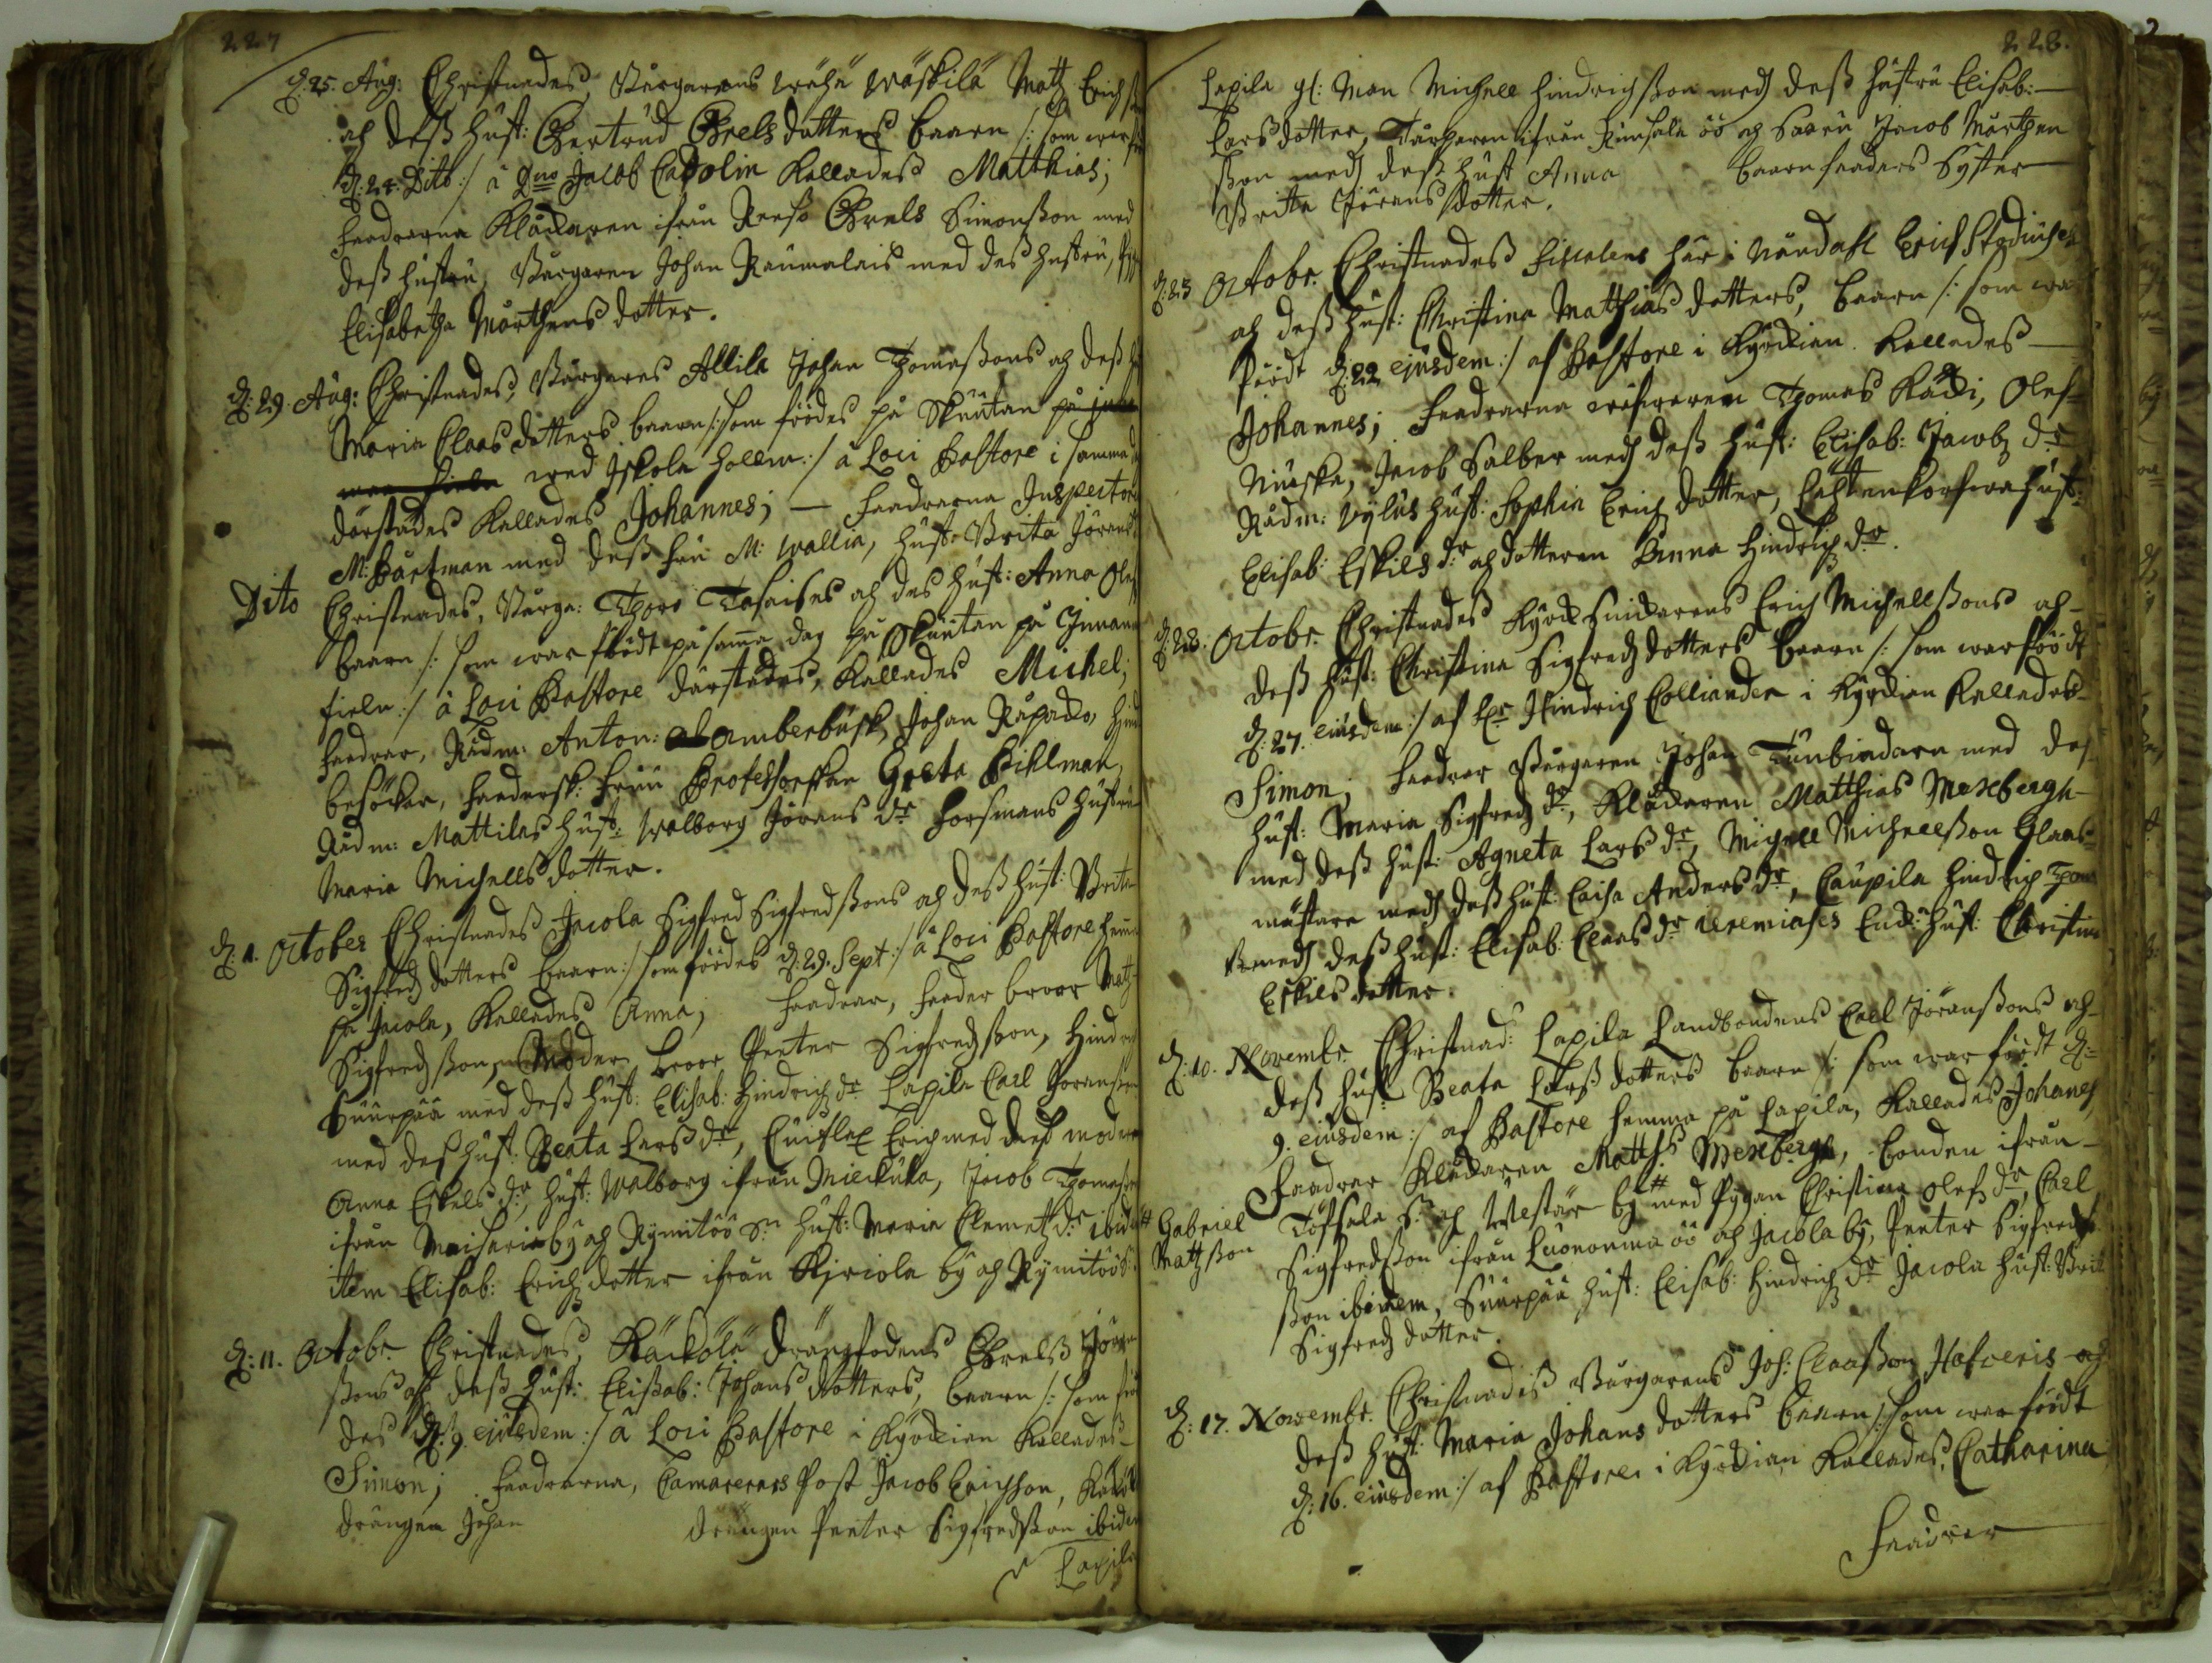 227
d. 25. Aug: Christnades, Borgarens Wähä Wäskilä Matz Erich
och deß hust: Gertrud Grels dotters baarn /: som war
d: 24. Dito :/ â Dno Jacob Cadolin kallades Matthias;
faadrarna klåckaren ifrån Reso Grels Simonßon med
deß hustru, Borgaren Johan Raumalais med deß hustru,
Elisabetha Mårthens dotter.
d: 29. Aug: Christnades, Borgarens Allila Johan Thomaßons och deß
Maria Claas dotters baarn /: som föddes på Skuutan
wed Iskola hollm :/ â Loci Pastore i samma
dörstädes kallades Johannes; — faadrarna Inspectoren
M: Bartman med deß fru M: Wallia, hust: Brita Jörans
Dito Christnades, Borga: Thomas Tasaises och des hust: Anna Olofs
baarn /: som war födt på sama dag på Skuutan på Innan
fieln :/ â Loci Pastore därstädes, kallades Michel;
faadrar, Rådm: Anton: Amberbusk, Johan Råpacko,
besökar, faddersk: fruu Professorskan Greta Pihlman,
Rådm: Mattilas hust: Walborg Jörans dr Forsmans hustru
Maria Michells dotter.
d: 1. October Christnades Jacola Sigfred Sigfredßons och deß hust: Brita
Sigfredz dotters baarn :/ som föddes d: 29. Sept :/ â Loci Pastore hema
på Jacola, kallades Anna; faadrar, faader broor Matz
Sigfredßon, Moder broor Peeter Sigfredßon, Hindrich
Suurpää med deß hust: Elisab: Hindrichz dr Lapila Carl Joranßon
med deß hust: Beata Larß dr, Erich med deß moder
Anna Eskels dr, hust: Walborg ifrån Mieckula, Jacob Thomaßon
ifrån Maisaari by och Rymitöö Sn hust: Maria Clemetz dr ibid
item Elisab: Erichz dotter ifrån Kiriola by och Rymitöö S:
d: 11. Octobr. Christnades, Käköla drängfodens Grelß Jöran
ßons och deß hust: Elißab: Johans dotters, baarn /: som föd
des d: 9. ejusdem :/ â Loci Pastore i Kyrckian kallades
Simon; faadrarna, Camererars Post Jacob Erichßon,
drängen Johan drängen Peeter Sigfredßon ibidem
Lapila
228.
Lapila gl: Man Michell Hindrichßon med deß hustru Elisab:
Larß dotter, Torparen ifrån Rimsala öö och Saaru Jacob Mårthen
ßon med deß hust Anna baarn faaders Syster
Brita Jörans dotter.
d: 25 Octobr. Christnadeß Fiscalens här i Nåndahl Erich
och deß hust: Christina Matthias dotters, baarn /: som war
född d: 22 ejusdem :/ af Pastore i Kyrckian kallades
Johannes; faadrarna Thomas Käcki, Olof
Niuska, Jacob Salber med deß hust: Elisab: Jacobz dr
Rådm: Vylus hust: Sophia Erichz dotter,
Elisab: Eskils dr och dotteren Anna Hindrichz dr.
d: 28. Octobr. Christnades Kyrck Snickarens Erich Michellßons och
deß hust: Christina Sigfredz dotters baarn /: som war född
d: 27. ejusdem :/ af Hr Hindrich Colliander i Kyrckian kallades
Simon; faadrar Borgaren Johan Tunbindaren med deß
hust: Maria Sigfredz dr, klåckaren Matthias Mexbergh
med deß hust: Agneta Larß dr, Michell Michellßon Glaas
mästare med deß hust: Caisa Anders dr, Caupila Hindrich Thom
ß med deß hust: Elisab: Claas dr Jeremiases Enck: hust: Christina
Eskilsdotter.
d: 10. Novembr. Christnad: Lapila Landbondens Carl Jöranßons och
deß hust Beata Larß dotters baarn /: som war föödt d:
9. ejusdem :/ af Pastore hemma på Lapila, kallades Johanes,
Faadrar klåckaren Matths Mexbergh, bonden ifrån
# Gabriel Matzßon Töfsala S: och Westär by # med Pygan Christina Olofz dr, Carl
Sigfredßon ifrån Luononma öö och Jacola by, Peeter Sigfredz
ßon ibidem, Suurpää hust: Elisab: Hindrichz dr Jacola hust: Brita
Sigfredz dotter.
d: 17. Novembr. Christnadeß Borgarens Joh: Claaßon Hafveris och
deß hust: Maria Johans dotters baarn /: som war föödt
d: 16. ejusdem :/ af Pastore i Kyrckian kallades, Catharina
Faadrar